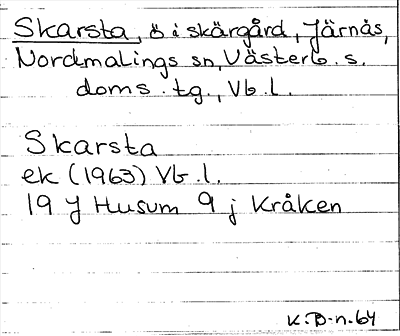 Skarsta, ö i skärgård, Järnäs,
Nordmalings sn, Västerb. s.
doms. tg., Vb. l.
Skarsta
ek (1963) Vb. l.
19 J Husum 9 j Kråken
K. D-n. 64